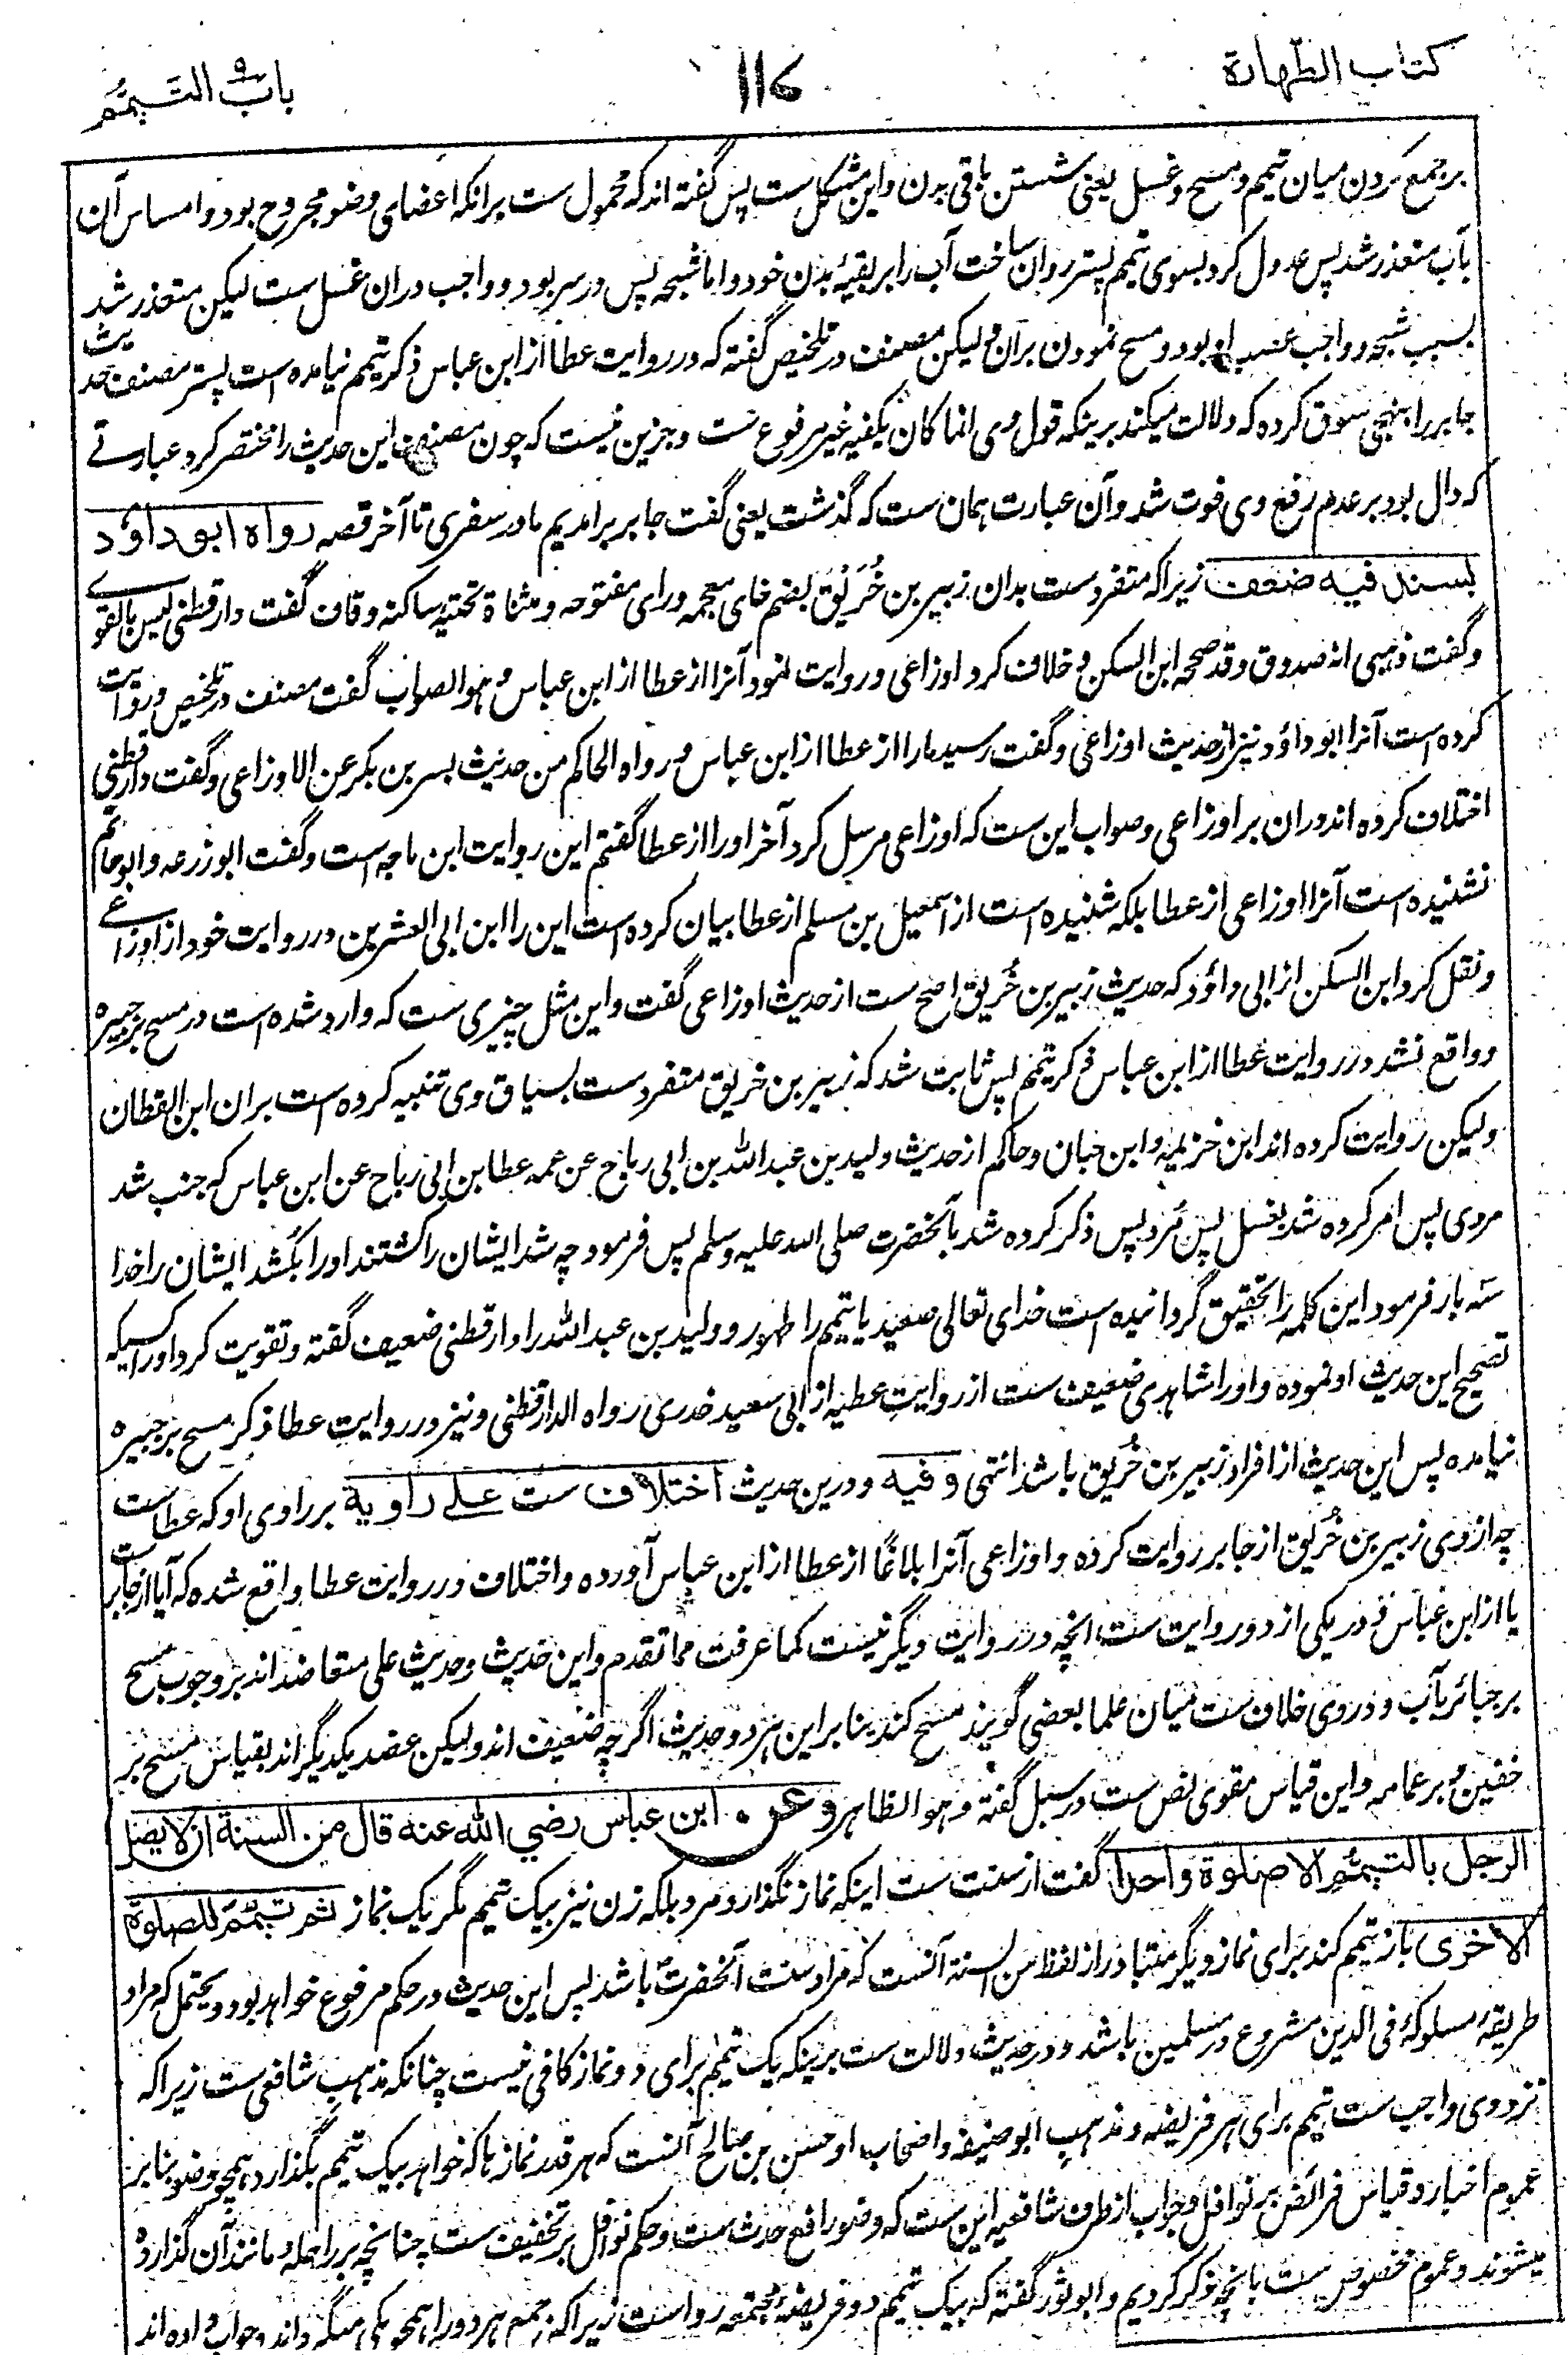 كتاب الطهارة
۱۱۷
باب التيمم
بر جمع کردن میان تیمم و مسح و غسل یعنی شستن باقی بدن و این مشکل ست پس گفته اند که محمول ست برانکه اعضای وضو مجروح بود و امساس آن
بآب متعذر شد پس عدول کرد بسوی تیمم پستر روان ساخت آب را بر بقیهٔ بدن خود و اما شجه پس در سر بود و واجب دران غسل ست لیکن متعذر شد
بسبب شجه و واجب عصب او بود و مسح نمودن بران و لیکن مصنف در تلخیص گفته که در روایت عطا از ابن عباس ذکر تیمم نیامده است پستر مصنف حدیث
جابر را بنهجی سوق کرده که دلالت میکند برینکه قول وی انما کان یکفیه غیر مرفوع ست و جزین نیست که چون مصنف این حدیث را مختصر کرد عبارتے
که دال بود بر عدم رفع وی فوت شد و آن عبارت همان ست که گذشت یعنی گفت جابر برامدیم ما در سفری تا آخر قصه رواه ابو داؤد
بسند فيه ضعف زیراکه متفرد ست بدان زبیر بن خُرَیْق بضم خای معجمه و رای مفتوحه و مثناة تحتیه ساکنه و قاف گفت دارقطنی لیس بالقوے
و گفت ذهبی انه صدوق و قد صححه ابن السکن و خلاف کرد اوزاعی و روایت نمود آنرا از عطا از ابن عباس و هو الصواب گفت مصنف در تلخیص و روایت
کرده است آنرا ابو داؤد نیز از حدیث اوزاعی و گفت رسید ما را از عطا از ابن عباس و رواه الحاکم من حدیث بسر بن بکر عن الاوزاعی و گفت دارقطنی
اختلاف کرده اند دران بر اوزاعی و صواب این ست که اوزاعی مرسل کرد آخر او را از عطا گفتم این روایت ابن ماجه است و گفت ابو زرعه و ابو حاتم
نشنیده است آنرا اوزاعی از عطا بلکه شنیده است از اسمعیل بن مسلم از عطا بیان کرده است این را ابن ابی العشرین در روایت خود از اوزاعے
و نقل کرد ابن السکن از ابی داؤد که حدیث زبیر بن خُریق اصح ست از حدیث اوزاعی گفت و این مثل چیزی ست که وارد شده است در مسح بر جبیره
و واقع نشد در روایت عطا از ابن عباس ذکر تیمم پس ثابت شد که زبیر بن خریق متفرد ست بسیاق وی تنبیه کرده است بران ابن القطان
و لیکن روایت کرده اند ابن خزیمه و ابن حبان و حاکم از حدیث ولید بن عبد الله بن ابی رباح عن عمه عطا بن ابی رباح عن ابن عباس که جنب شد
مردی پس امر کرده شد بغسل پس مُرد پس ذکر کرده شد بآنحضرت صلی الله علیه وسلم پس فرمود چه شد ایشان را کشتند او را بکشد ایشان را خدا
سه بار فرمود این کلمه را بتحقیق گردانیده است خدای تعالی صعید یا تیمم را طهور و ولید بن عبد الله را دارقطنی ضعیف گفته و تقویت کرد او را کسیکه
تصحیح این حدیث او نموده و او را شاهدی ضعیف ست از روایت عطیه از ابی سعید خدری رواه الدارقطنی و نیز در روایت عطا ذکر مسح بر جبیره
نیامده پس این حدیث از افراد زبیر بن خُریق باشد انتهی وفيه و درین حدیث اختلاف ست علے راويه بر راوی او که عطاست
چه از وی زبیر بن خُریق از جابر روایت کرده و اوزاعی آنرا بلاغًا از عطا از ابن عباس آورده و اختلاف در روایت عطا واقع شده که آیا از جابر ست
یا از ابن عباس و در یکی از دو روایت ست انچه در روایت دیگر نیست کما عرفت مما تقدم و این حدیث و حدیث علی متعاضد اند بر وجوب مسح
بر جبائر بآب و در وی خلاف ست میان علما بعضی گویند مسح کند بنا بر این هر دو حدیث اگرچه ضعیف اند و لیکن عضد یکدیگر اند بقیاس مسح بر
خفین و بر عمامه و این قیاس مقوی نص ست در سبل گفته و هو الظاهر وعن ابن عباس رضي الله عنه قال من السنة ان لا يصل
الرجل بالتيمم الا صلوة واحدة گفت از سنت ست اینکه نماز نگذارد مرد بلکه زن نیز بیک تیمم مگر یک نماز ثم تيمم للصلوة
الاخرى باز تیمم کند برای نماز دیگر متبادر از لفظ من السنة آنست که مراد سنت آنحضرت باشد پس این حدیث در حکم مرفوع خواهد بود و یحتمل که مراد
طریقهٔ مسلوکهٔ فی الدین مشروع در مسلمین باشد و در حدیث دلالت ست برینکه یک تیمم برای دو نماز کافی نیست چنانکه مذهب شافعی ست زیراکه
نزد وی واجب ست تیمم برای هر فریضه و مذهب ابو حنیفه و اصحاب او حسن بن صالح آنست که هر قدر نماز ها که خواهد بیک تیمم بگذارد همچو وضو بنا بر
عموم اخبار و قیاس فرائض بر نوافل و جواب از طرف شافعیه این ست که وضو رافع حدث ست و حکم نوافل بر تخفیف ست چنانچه بر راحله و مانند آن گذارده
میشوند و عموم مخصوص ست بانچه ذکر کردیم و ابو ثور گفته که بیک تیمم دو فریضهٔ مجتمعه روا ست زیراکه جمع هر دو را همچو یکی میگرداند و جواب داده اند